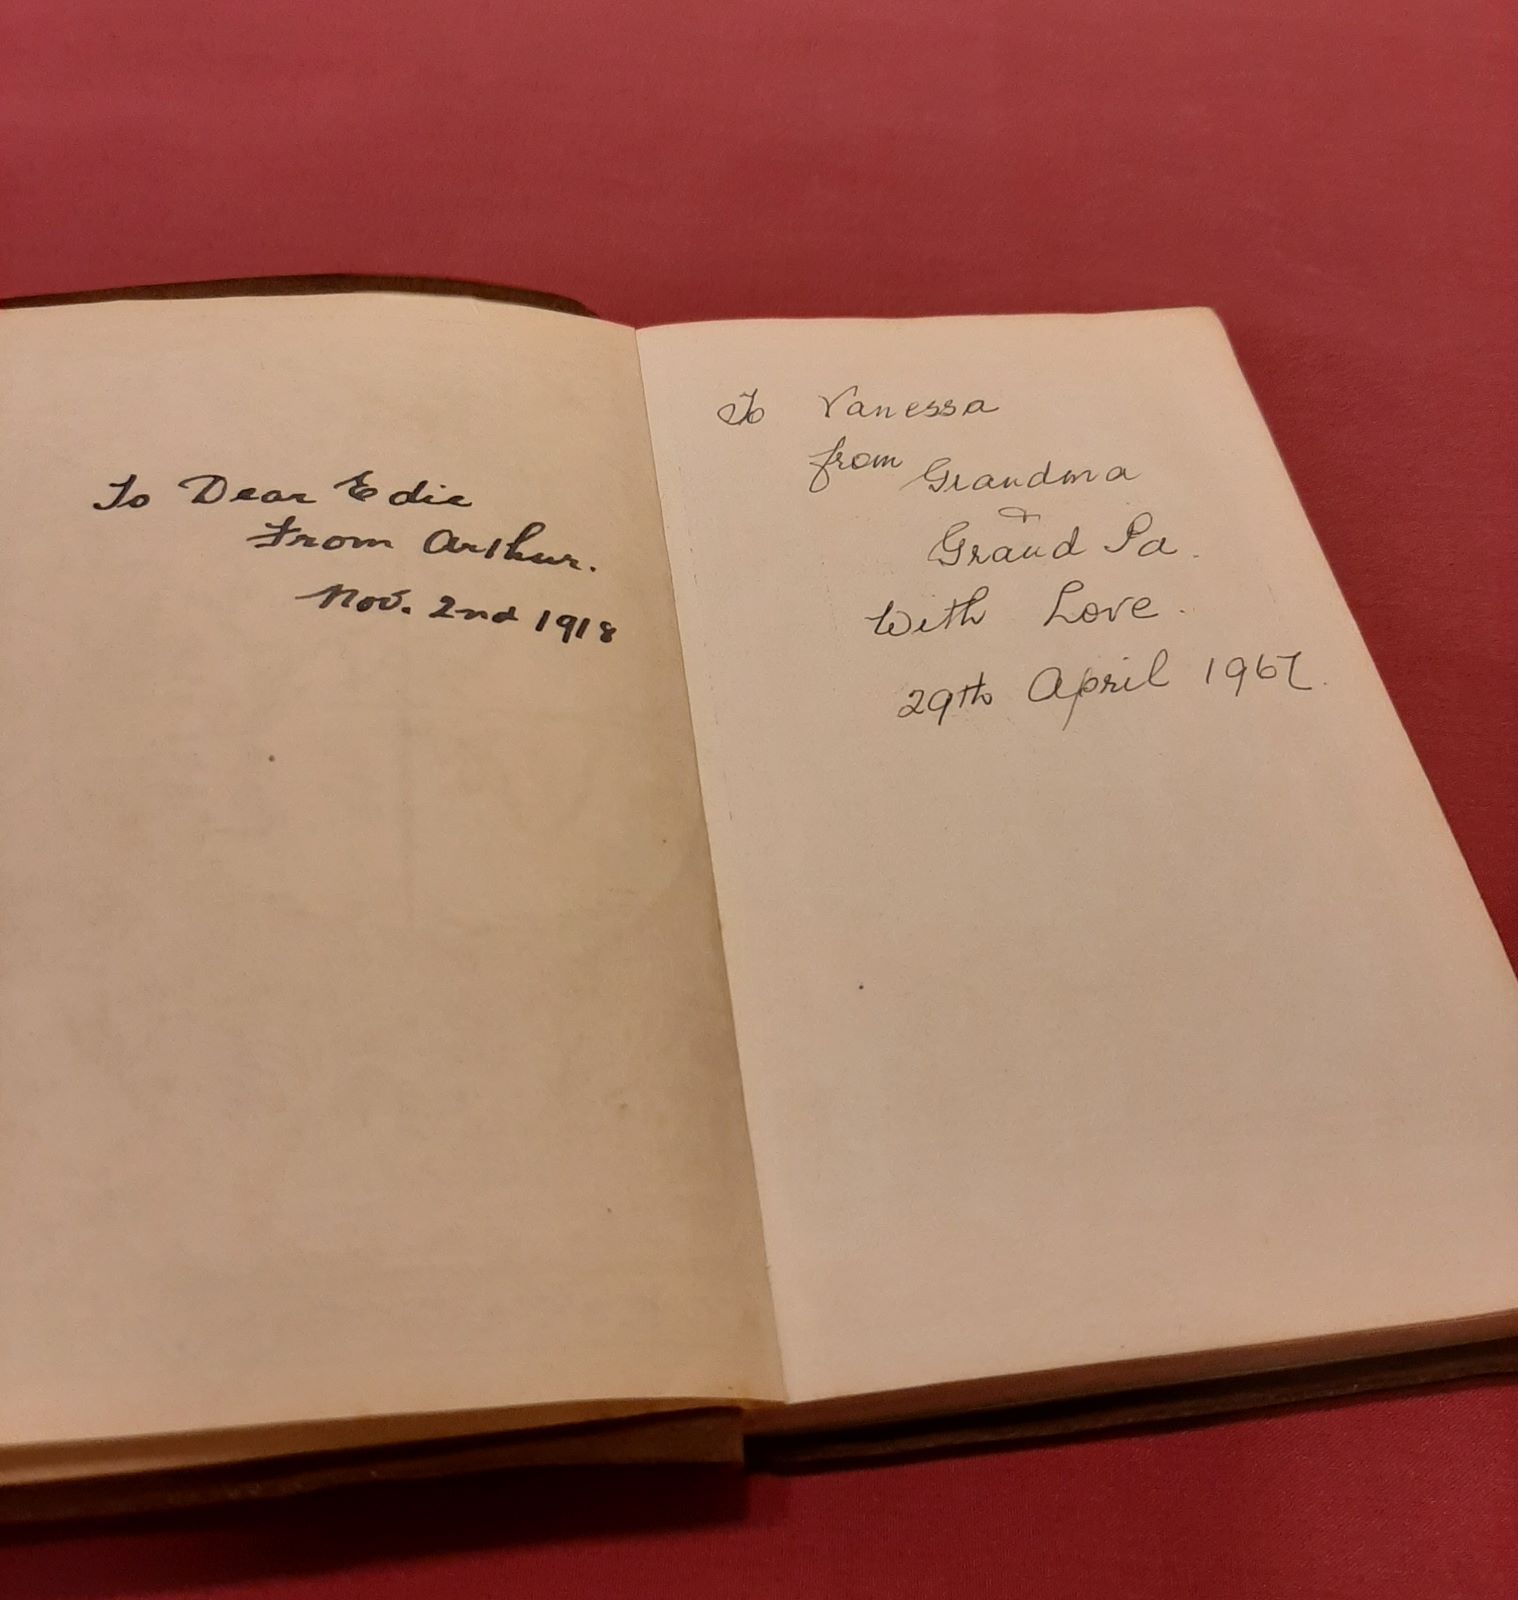 To Dear Edie
From Arthur.
Nov. 2nd 1918
To Vanessa
from Grandma
&
Grand Pa.
With Love.
29th April 1967.